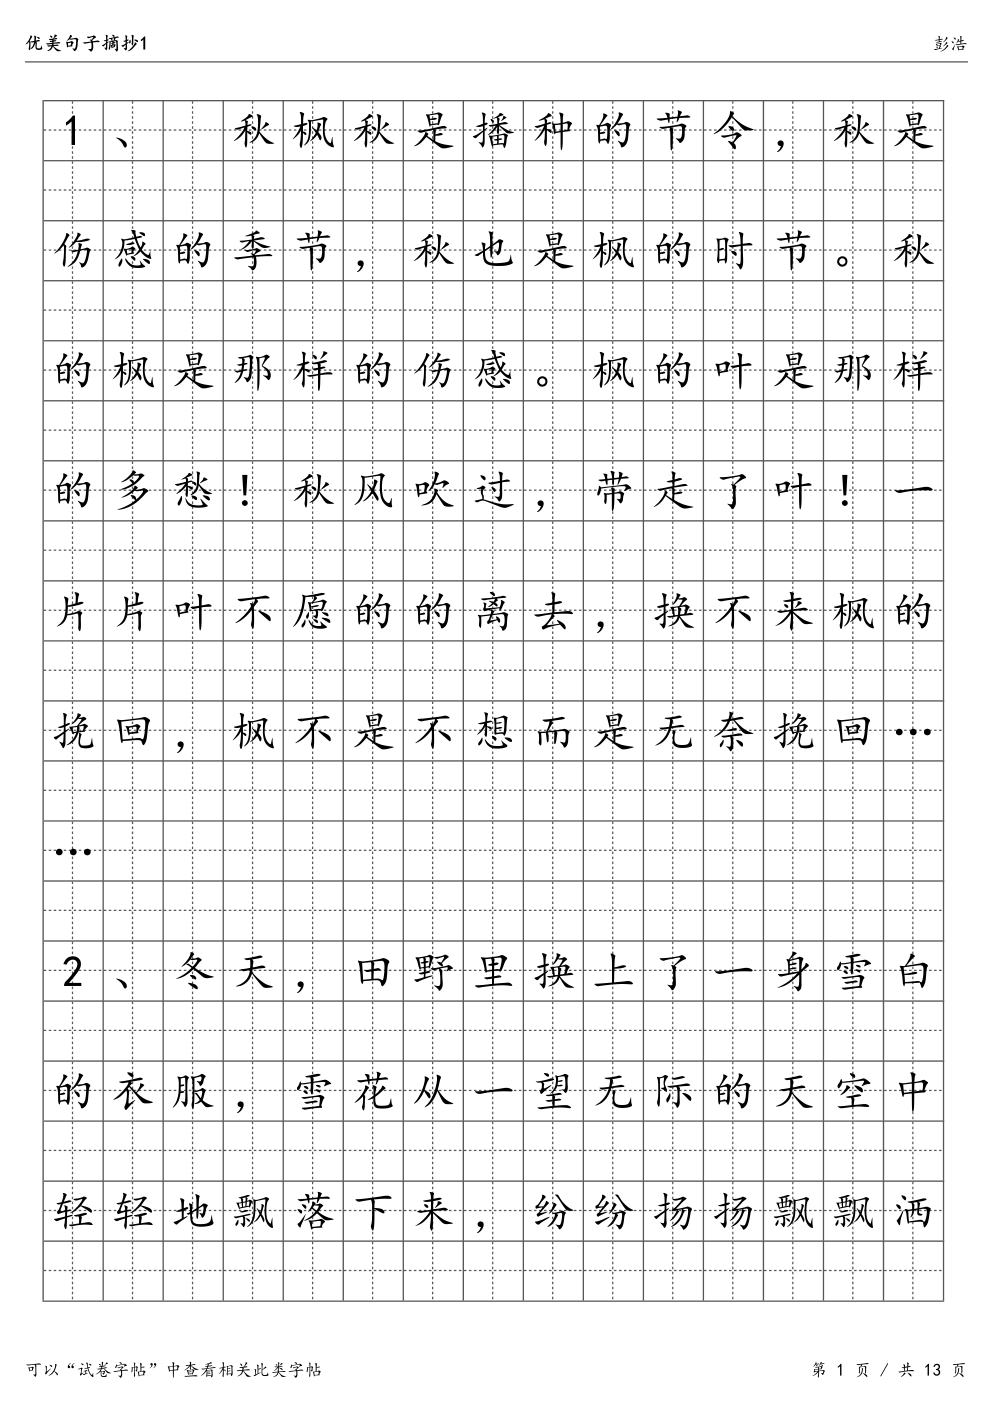 优美句子摘抄1 彭浩
1、 秋枫秋是播种的节令，秋是
伤感的季节，秋也是枫的时节。秋
的枫是那样的伤感。枫的叶是那样
的多愁！秋风吹过，带走了叶！一
片片叶不愿的的离去，换不来枫的
挽回，枫不是不想而是无奈挽回…
…
2、冬天，田野里换上了一身雪白
的衣服，雪花从一望无际的天空中
轻轻地飘落下来，纷纷扬扬飘飘洒
可以“试卷字帖”中查看相关此类字帖 第 1 页 / 共 13 页